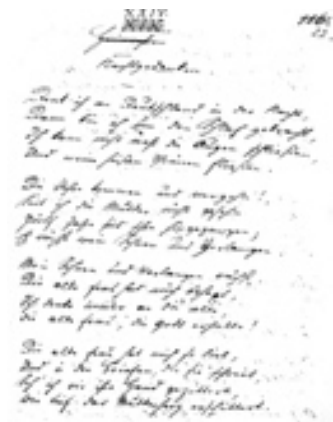 Nachtgedanken
Denk ich an Deutschland in der Nacht,
Dann bin ich um den Schlaf gebracht,
Ich kann nicht mehr die Augen schließen,
Und meine heißen Thränen fließen.
Die Jahre kommen und vergehn!
Seit ich die Mutter nicht gesehn
Zwölf Jahre hingegangen;
Es wächst mein Sehnen und Verlangen.
Mein Sehnen und Verlangen wächst.
Die alte Frau hat mich behext,
Ich denke immer an die alte,
Die alte Frau, die Gott erhalte!
Die alte Frau hat mich so lieb,
Und in den Briefen, die sie schrieb,
Seh ich wie ihre Hand gezittert,
Wie tief das Mutterherz erschüttert.